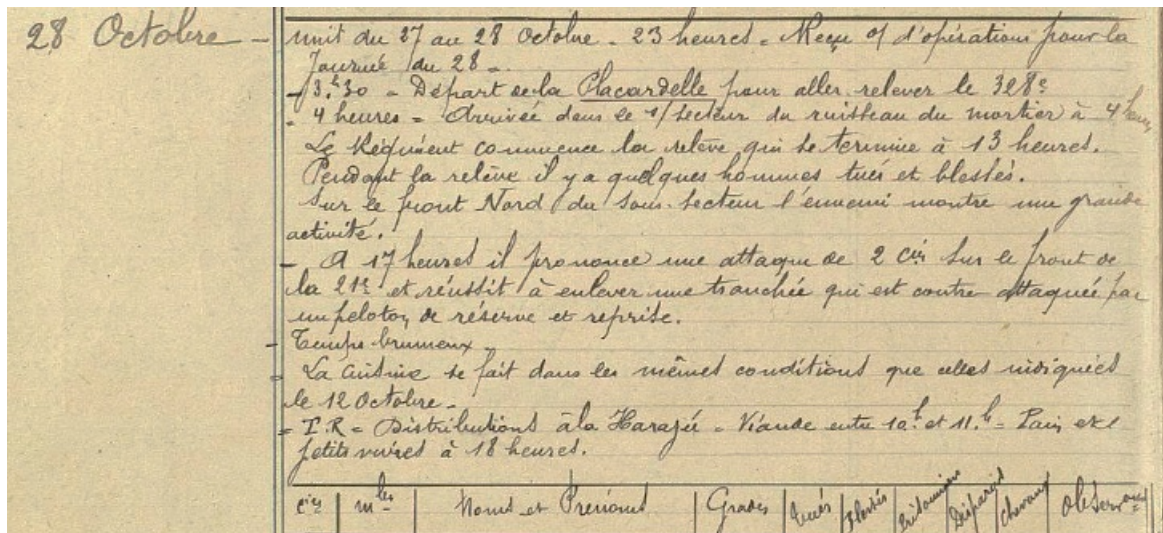 28 Octobre - nuit du 27 au 28 Octobre - 23 heures = Reçu O/ d'opérations pour la
Journée du 28 -
- 3.h30 = Départ de la Placardelle pour aller relever le 328e
- 4 heures = Arrivée dans le s/secteur du ruisseau du mortier à 4 heures
Le Régiment commence la relève qui se termine à 13 heures.
Pendant la relève il y a quelques hommes tués et blessés.
Sur le front Nord du Sous-secteur l'ennemi montre une grande
activité.
- A 17 heures il prononce une attaque de 2 Cies sur le front de
la 21e et réussit à enlever une tranchée qui est contre attaquée par
un peloton de réserve et reprise.
- Temps brumeux -
- La cuisine se fait dans les mêmes conditions que celles indiquées
le 12 Octobre -
= T.R = Distributions à la Harazée = Viande entre 10.h et 11.h = Pain et
petits vivres à 18 heures.
Cies | Mles | Noms et Prénoms | Grades | Tués | Blessés | Prisonniers | Disparus | Chevaux | Observons